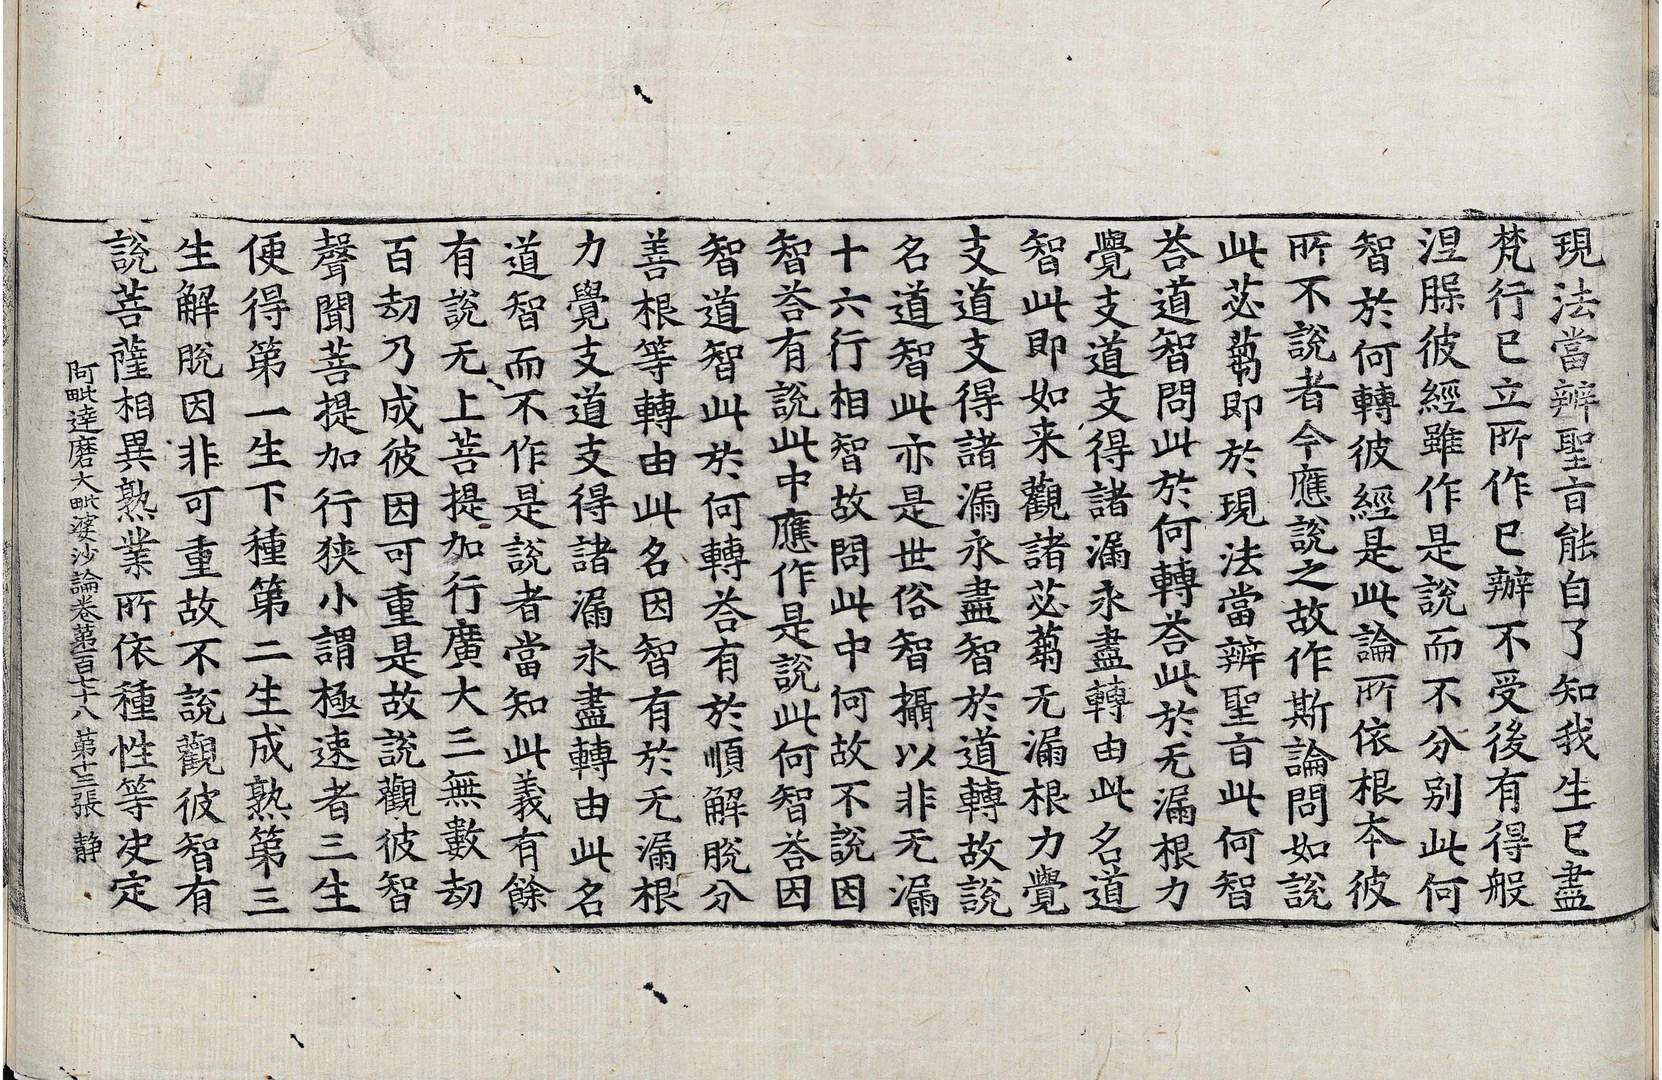 現法當辦聖旨能自了知我生已盡
梵行已立所作已辦不受後有得般
涅臊彼經雖作是說而不分別此何
智於何轉彼經是此論所依根本彼
所不說者今應說之故作斯論問如說
此苾蒭即於現法當辦聖旨此何智
荅道智問此於何轉荅此於无漏根力
覺支道支得諸漏永盡轉由此名道
智此即如来觀諸苾蒭无漏根力覺
支道支得諸漏永盡智於道轉故說
名道智此亦是世俗智攝以非无漏
十六行相智故問此中何故不說因
智荅有說此中應作是說此何智荅因
智道智此於何轉荅有於順解脫分
善根等轉由此名因智有於无漏根
力覺支道支得諸漏永盡轉由此名
道智而不作是說者當知此義有餘
有說无上菩提加行廣大三無數劫
百劫乃成彼因可重是故說觀彼智
聲聞菩提加行狹小謂極速者三生
便得第一生下種第二生成熟第三
生解脫因非可重故不說觀彼智有
說菩薩相異熟業所依種性等决定
阿毗達磨大毗婆沙論卷第百七十八 第十三張 静